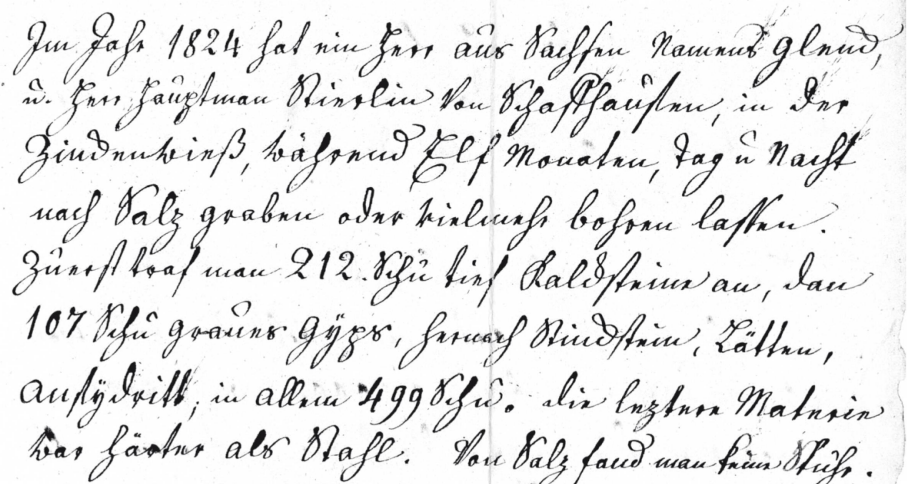 Im Jahr 1824 hat ein Herr aus Sachsen Namens Glend,
u. Herr Hauptman Stierlin von Schaffhausen, in der
Zindenwieß, während Elf Monaten, Tag u Nacht
nach Salz graben oder vielmehr bohren lassen.
Zuerst traf man 212. Schu tief Kaldsteine an, dan
107 Schu graues Gyps, hernach Stindstein, Lätten,
Anhydritt, in allem 499 Schu. die leztere Materie
war härter als Stahl. Von Salz fand man keine Spuhr.